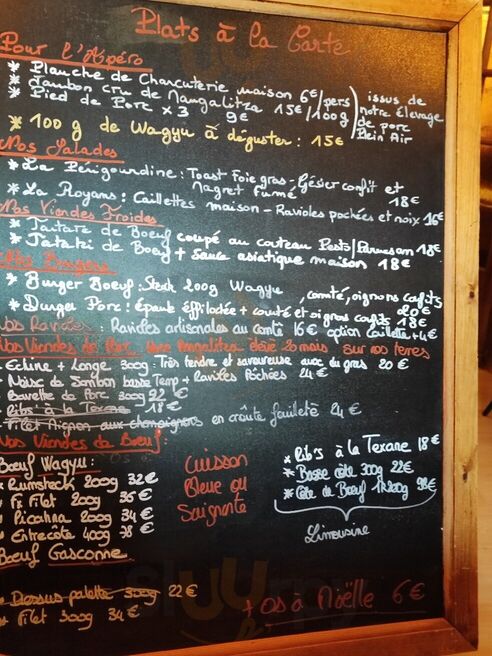 Plats à la Carte
Pour l'Apéro
* Planche de Charcuterie maison 6€/pers
* Jambon cru de Mangalitza 15€/100g
* Pied de Porc x 3 9€
issus de
notre Elevage
de porc
Plein Air
* 100 g de Wagyu à déguster : 15€
Nos Salades
* La Périgourdine : Toast Foie gras - Gésier confit et
Magret fumé 18€
* La Royans : Caillettes maison - Ravioles pochées et noix 16€
Nos Viandes Froides
* Tartare de Boeuf coupé au couteau Pesto/Parmesan 18€
* Tataki de Boeuf + sauce asiatique maison 18€
Nos Burgers
* Burger Boeuf : Steak 200g Wagyu, comté, oignons confits
20€
* Burger Porc : épaule effilochée + comté et oignons confits 18€
Nos Ravioles : Ravioles artisanales au comté 16€ option caillette + 4€
Nos Viandes de Porc Mangalitza élevé 20 mois sur nos terres
- Echine + Longe 300g : Très tendre et savoureuse avec du gras 20€
- Noix de Jambon basse Temp + Ravioles Pôchées 24€
- Bavette de Porc 300g 22€
- Ribs à la Texane 18€
- Filet Mignon aux champignons en croûte feuileté 24€
Nos Viandes de Boeuf :
Boeuf Wagyu :
Rumsteck 200g 32€
Fx Filet 200g 35€
Picanha 200g 34€
Entrecote 400g 78€
Boeuf Gasconne
Dessus palette 300g 22€
Filet 300g 34€
Cuisson
Bleue ou
Saignante
* Rib's à la Texane 18€
* Basse côte 300g 22€
* Côte de Boeuf 1k200g 98€
Limousine
+ Os à Moëlle 6€